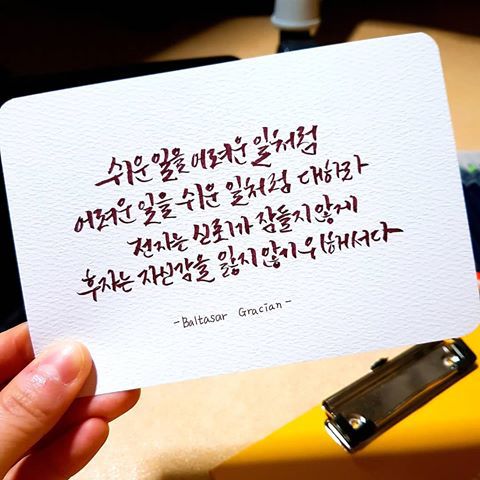 쉬운 일을 어려운 일처럼
어려운 일을 쉬운 일처럼 대하라
전자는 신뢰가 잠들지 않게
후자는 자신감을 잃지 않기 위해서다
-Baltasar Gracian-